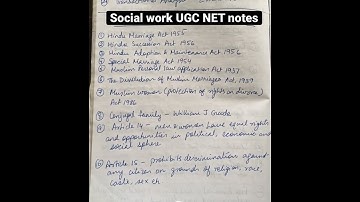 Transactional Analysis
Social work UGC NET notes
① Hindu Marriage Act 1955
② Hindu Succession Act 1956
③ Hindu Adoption & Maintenance Act 1956
④ Special Marriage Act 1954
⑤ Muslim Personal law application Act 1937
⑥ The Dissolution of Muslim Marriages Act, 1939
⑦ Muslim women (protection of rights on divorce)
Act 1986
⑧ Conjugal family - William J Goode
⑨ Article 14 - men & women have equal rights
and opportunities in political, economic and
social sphere
⑩ Article 15 - prohibits discrimination against
any citizen on grounds of religion, race,
caste, sex etc